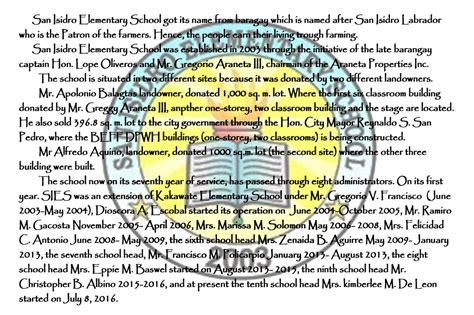 San Isidro Elementary School got its name from baragay which is named after San Isidro Labrador
who is the Patron of the farmers. Hence, the people earn their living trough farming.
San Isidro Elementary School was established in 2003 through the initiative of the late barangay
captain Hon. Lope Oliveros and Mr. Gregorio Araneta III, chairman of the Araneta Properties Inc.
The school is situated in two different sites because it was donated by two different landowners.
Mr. Apolonio Balagtas landowner, donated 1,000 sq. m. lot. Where the first six classroom building
donated by Mr. Greggy Araneta III, anpther one-storey, two classroom building and the stage are located.
He also sold 396.8 sq. m. lot to the city government through the Hon. City Mayor Reynaldo S. San
Pedro, where the BEFF DPWH buildings (one-storey, two classrooms) is being constructed.
Mr Alfredo Aquino, landowner, donated 1000 sq. m. lot (the second site) where the other three
building were built.
The school now on its seventh year of service, has passed through eight administrators. On its first
year. SIES was an extension of Kakawate Elementary School under Mr. Gregorio V. Francisco (June
2003-May 2004), Dioscora A. Escobal started its operation on June 2004-October 2005, Mr. Ramiro
M. Gacosta November 2005- April 2006, Mrs. Marissa M. Solomon May 2006- 2008, Mrs. Felicidad
C. Antonio June 2008- May 2009, the sixth school head Mrs. Zenaida B. Aguirre May 2009- January
2013, the seventh school head, Mr. Francisco M. Policarpio January 2013- August 2013, the eight
school head Mrs. Eppie M. Baswel started on August 2013- 2015, the ninth school head Mr.
Christopher B. Albino 2015-2016, and at present the tenth school head Mrs. kimberlee M. De Leon
started on July 8, 2016.
2003